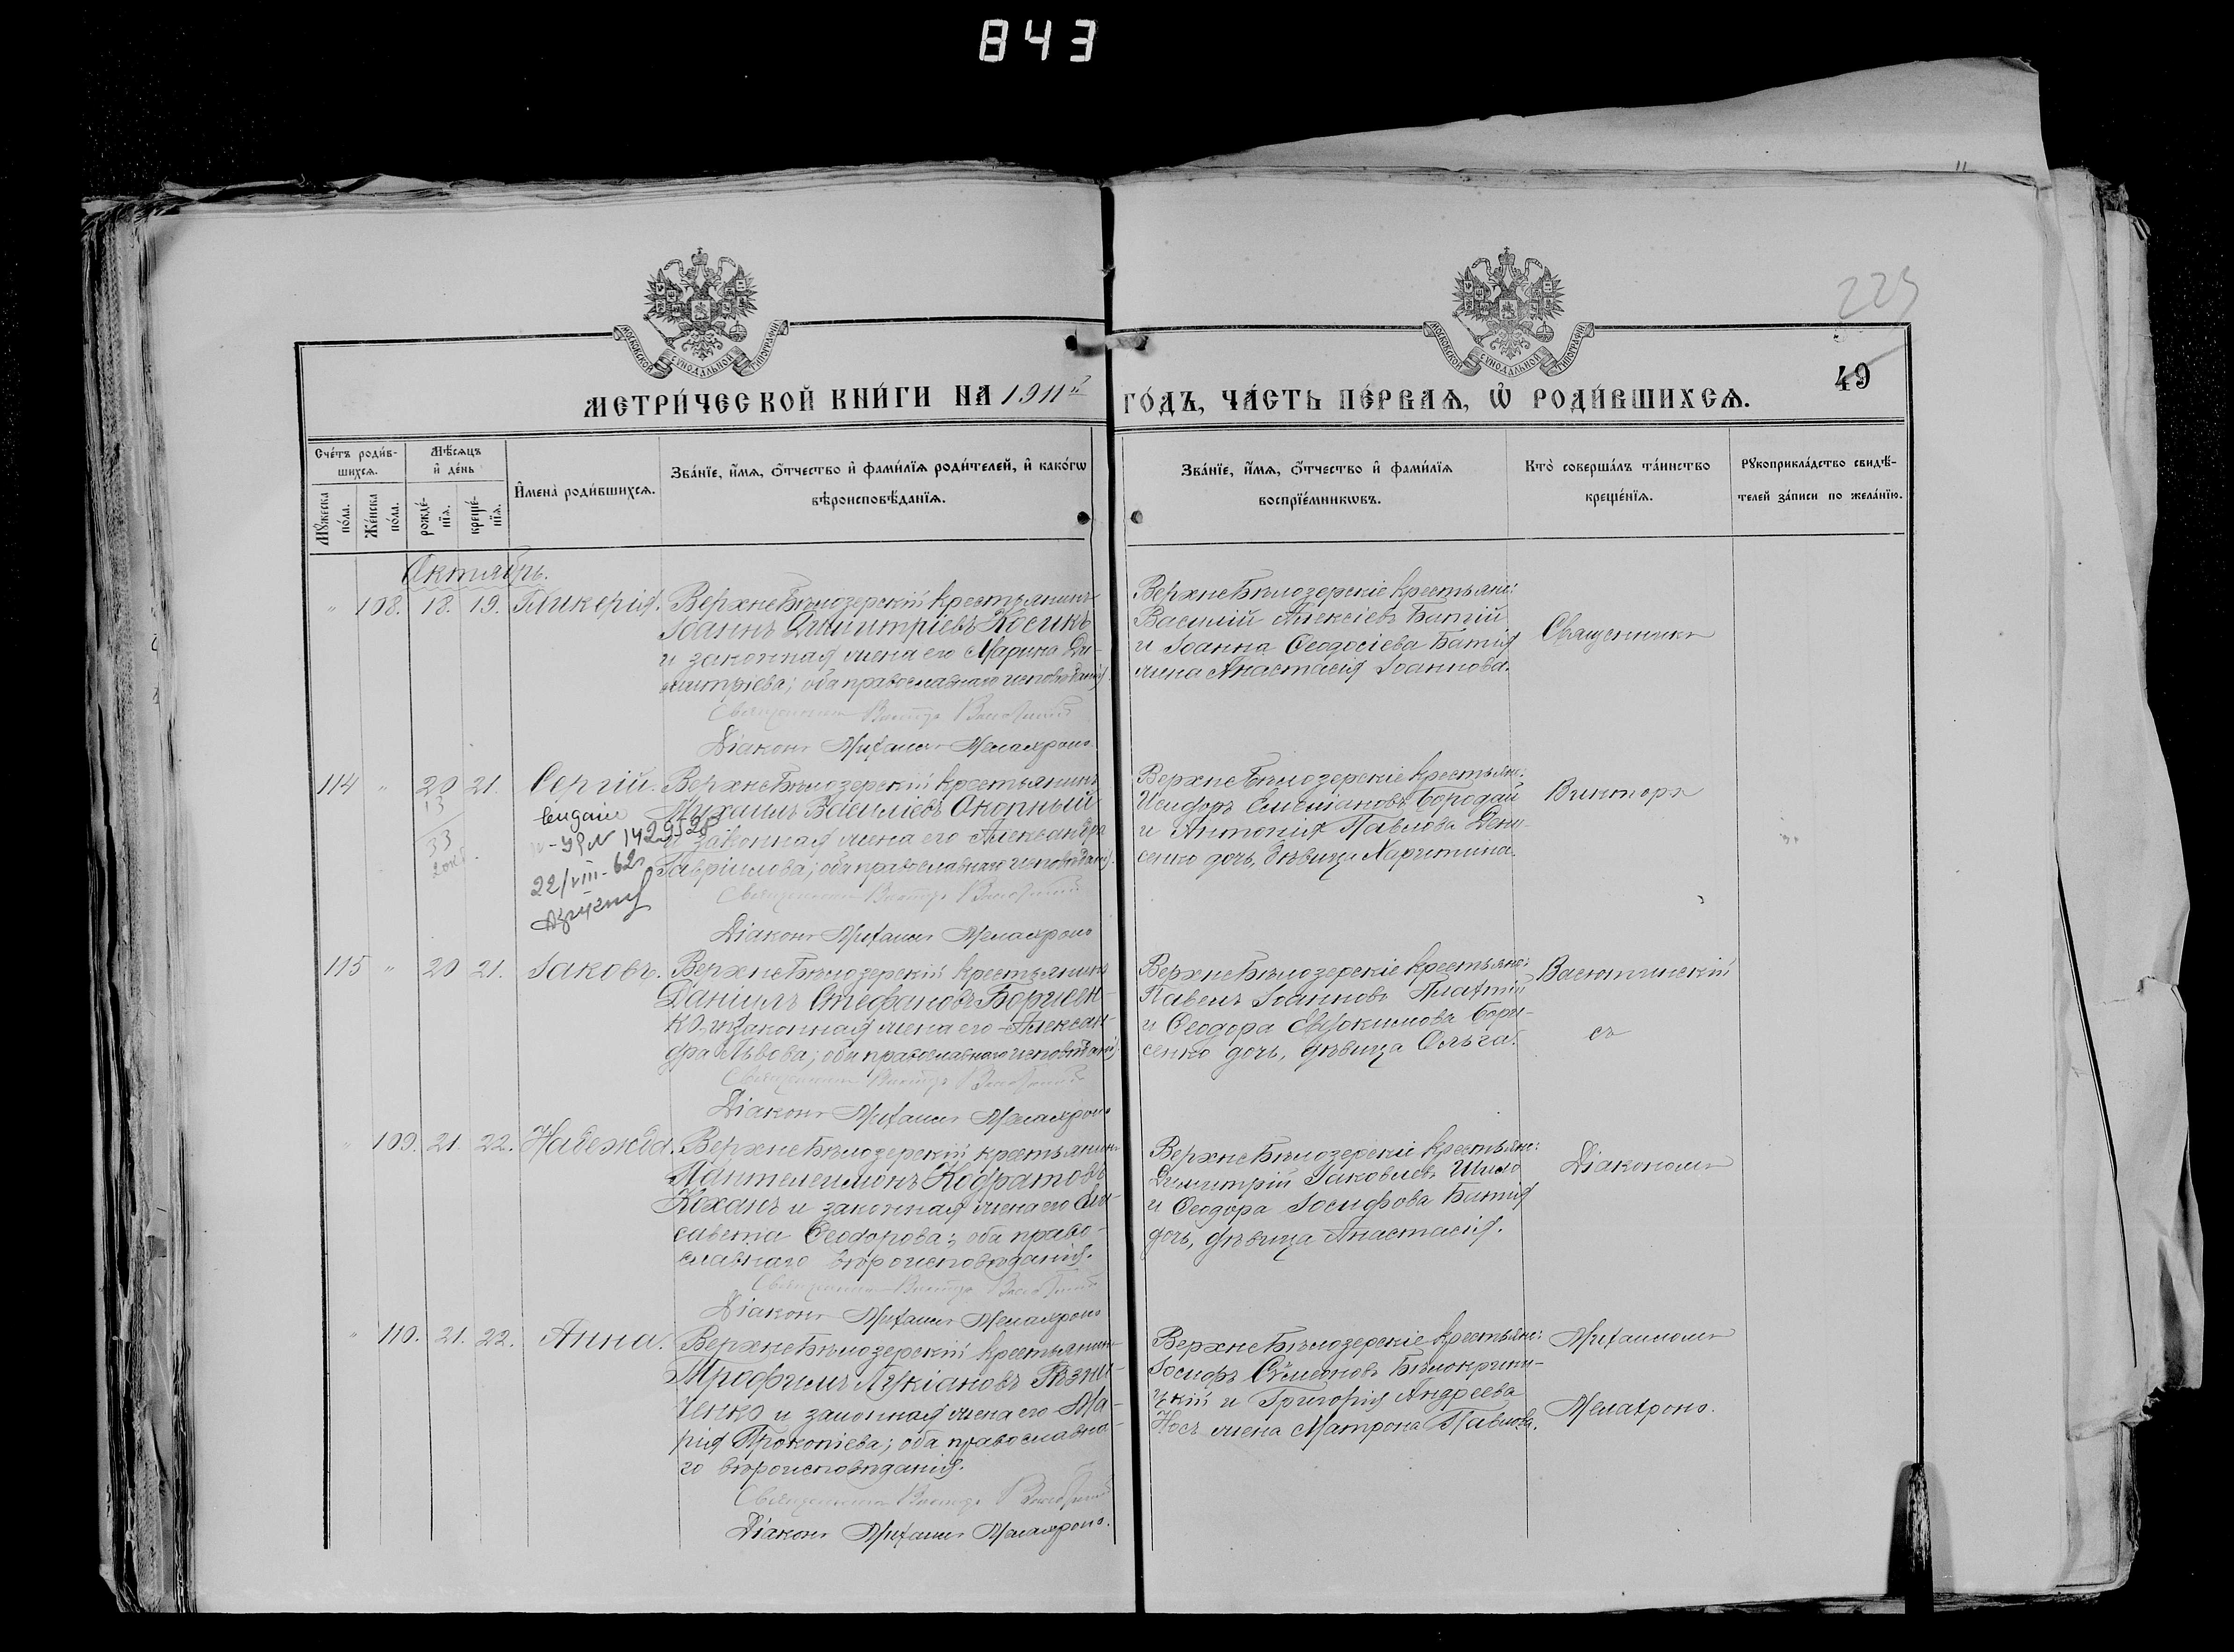 843
223
49
МОСКОВСКОЙ СѴНОДАЛЬНОЙ ТИПОГРАФІИ
МОСКОВСКОЙ СѴНОДАЛЬНОЙ ТИПОГРАФІИ
МЕТРИ́ЧЕСКОЙ КНИ́ГИ НА 1911й ГО́ДЪ, ЧА́СТЬ ПЕ́РВАѦ, Ѿ РОДИ́ВШИХСѦ.
Сче́тъ роди́в-
шихсѧ.
Мꙋ́жеска по́ла.
Же́нска по́ла.
Мѣ́сѧцъ и҆ де́нь
рожде́-нїѧ.
креще́-нїѧ.
И҆мена̀ роди́вшихсѧ.
Зва́нїе, и҆́мѧ, ѻ҆́тчество и҆ фами́лїѧ роди́телей, и҆ како́гѡ
вѣроисповѣ́данїѧ.
Зва́нїе, и҆́мѧ, ѻ҆́тчество и҆ фами́лїѧ
воспрїе́мникѡвъ.
Кто̀ соверша́лъ та́инство
креще́нїѧ.
Рꙋкоприкла́дство свидѣ́-
телей за́писи по жела́нїю.
Октябрь.
" 108. 18. 19. Гликерія. Верхнебѣлозерскій крестьянинъ
Іоаннъ Димитріевъ Косикъ
и законная жена его Марина Ди-
митріева; оба православнаго исповѣданія.
Священникъ Викторъ
Діаконъ Михаилъ Мелахроно
Верхнебѣлозерскіе крестьяне:
Василій Алексіевъ Батій
и Іоанна Ѳеодосіева Батія
жена Анастасія Іоаннова.
Священникъ
114 " 20 21. Сергій. Верхнебѣлозерскій крестьянинъ
Михаилъ Василіевъ Окопный
и законная жена его Александра
Гавріилова; оба православнаго исповѣданія.
Священникъ Викторъ
Діаконъ Михаилъ Мелахроно
13
33
22/VIII-62
Верхнебѣлозерскіе крестьяне:
Исидоръ Симеоновъ Бородай
и Антонія Павлова Дени-
сенко дочь, дѣвица Харитина.
Викторъ
115 " 20 21. Іаковъ. Верхнебѣлозерскій крестьянинъ
Даніилъ Стефановъ Борисен-
ко и законная жена его Алексан-
дра Львова; оба православнаго исповѣданія.
Священникъ Викторъ
Діаконъ Михаилъ Мелахроно
Верхнебѣлозерскіе крестьяне:
Павелъ Іоанновъ Платній
и Ѳеодора Евдокимова Бори-
сенко дочь, дѣвица Ольга.
Васютинскій
съ
" 109. 21. 22. Надежда. Верхнебѣлозерскій крестьянинъ
Пантелеимонъ Кодратовъ
Коханъ и законная жена его Ели-
савета Ѳеодорова; оба право-
славнаго вѣроисповѣданія.
Священникъ Викторъ
Діаконъ Михаилъ Мелахроно
Верхнебѣлозерскіе крестьяне:
Димитрій Іаковлевъ Шило
и Ѳеодора Іосифова Батія
дочь, дѣвица Анастасія.
Діакономъ
" 110. 21. 22. Анна. Верхнебѣлозерскій крестьянинъ
Трофимъ Лукіановъ Рѣзни-
ченко и законная жена его Ма-
рія Прокопіева; оба православна-
го вѣроисповѣданія.
Священникъ Викторъ
Діаконъ Михаилъ Мелахроно.
Верхнебѣлозерскіе крестьяне:
Іосифъ Сѵмеоновъ Бѣлокрини-
цкій и Григорія Андреева
Носъ жена Матрона Павлова.
Михаиломъ
Мелахроно.